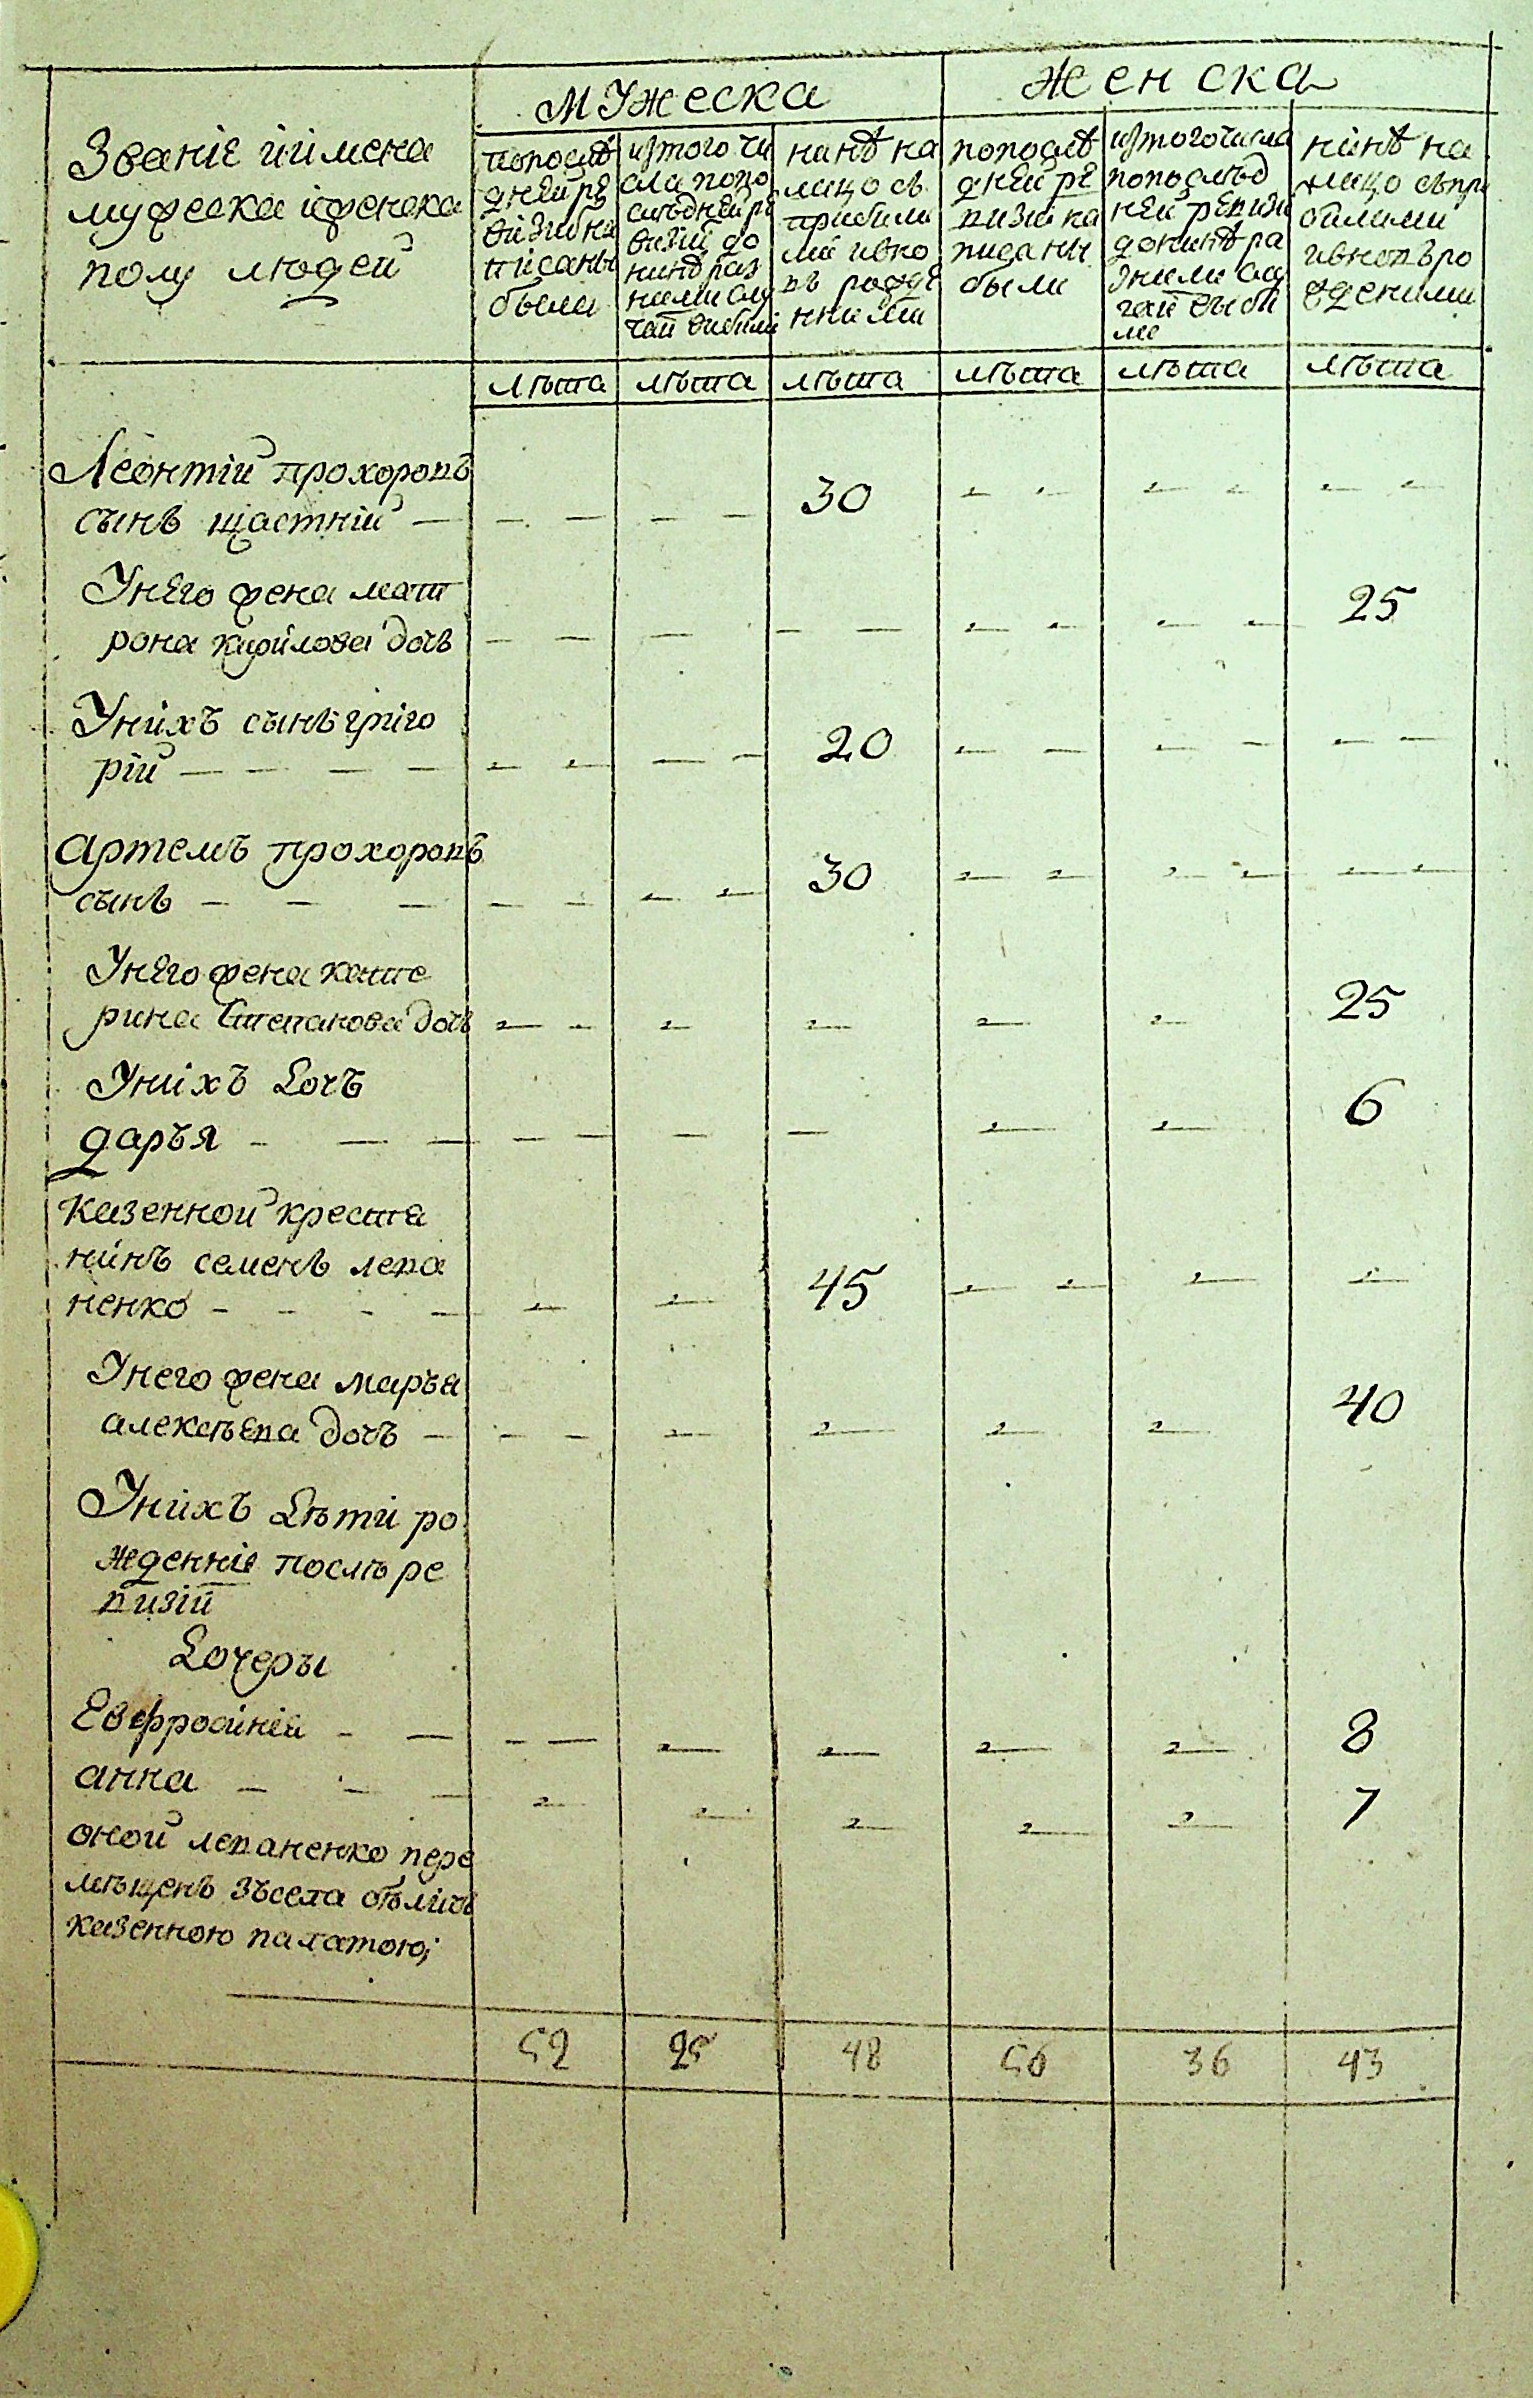 мужеска
женска
Званіе иімена
мужеска іженска
полу людей
попослѣ
дней ре
визіи на
писаны
были
изтого чи
сла попо
слѣдней ре
визіи до
нинѣ раз
ними слу
чаи вибили
нинѣ на
лицо съ
прибили
ми ивно
въ рожде
нними
попослѣ
дней ре
визіи на
писаны
были
изтого числа
попослѣд
ней ревизи
донинѣ ра
зними слу
чаи выби
ли
нинѣ на
лицо съпри
билими
ивновъ ро
жденими
лѣта лѣта лѣта лѣта лѣта лѣта
Леонтій прохоровъ
сынъ щастній — 30
Унего жена мат
рона кирилова дочь 25
Унихъ сынъ григо
рій — 20
Артемъ прохоровъ
сынъ — 30
Унего жена кате
рина Степанова дочь 25
Унихъ дочь
дарья — 6
казенной крестя
нинъ семенъ лева
ненко — 45
Унего жена марья
алексѣева дочь — 40
Унихъ дѣти ро
жденніе послѣ ре
визіи
дочеры
Евфросінія — 8
анна — 7
оной леваненко пере
мѣщенъ зъсела
казенною палатою;
52 25 48 56 36 43